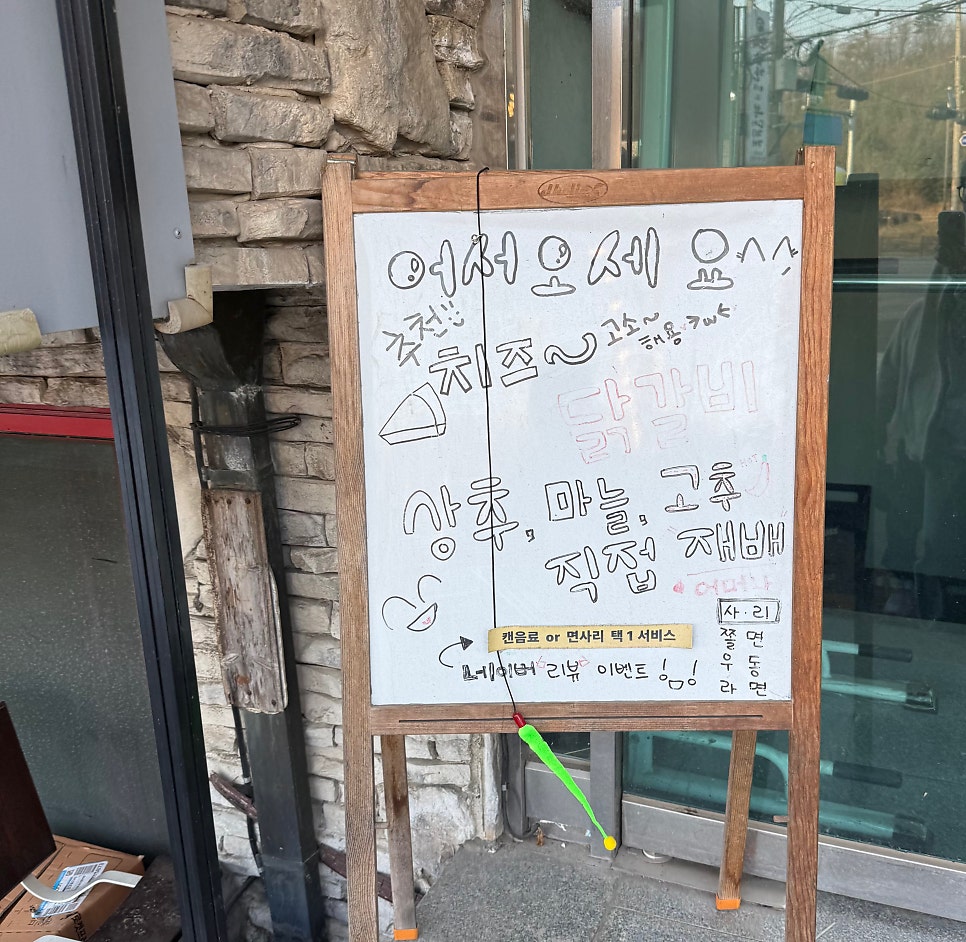 어서오세요^^
추천!!
치즈~ 고소~
해용 >ω<
닭갈비
상추, 마늘, 고추
HOT
직접 재배
♥어머나
사·리
쫄면
우동
라면
캔음료 or 면사리 택1 서비스
네이버 "리뷰" 이벤트